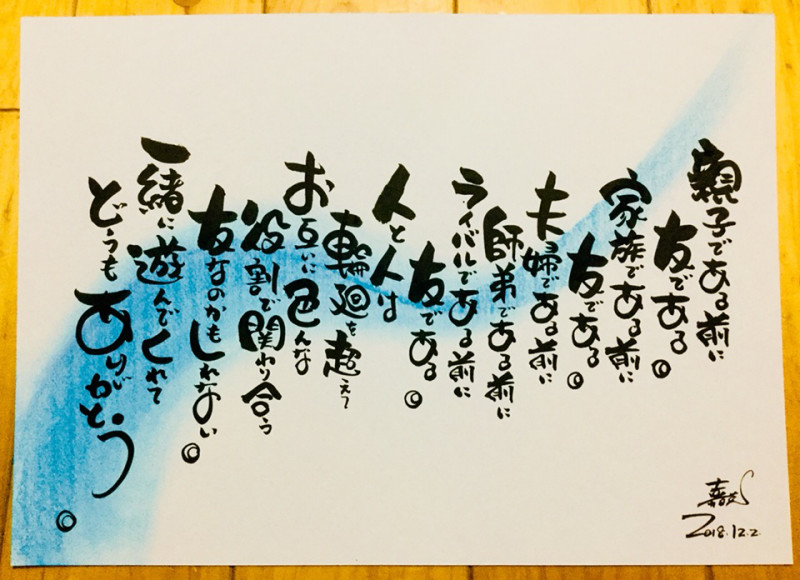 親子である前に
友である。
家族である前に
友である。
夫婦である前に
師弟である前に
ライバルである前に
友である。
人と人は
輪廻を超えて
お互いに色んな
役割で関わり合う
友なのかもしれない。
一緒に遊んでくれて
どうもありがとう。
2018.12.2.